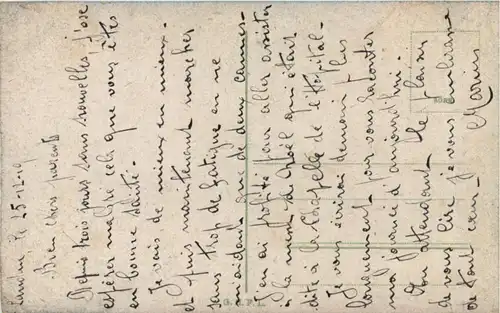 le 25-12-19
Bien chers parents
Depuis trois jours sans nouvelles, j'ose
espérer malgré cela que vous êtes
en bonne santé.
Je vais de mieux en mieux
et puis maintenant marcher
sans trop de fatigue en ne
m'aidant que de deux cannes.
J'en ai profité pour aller assister
à la messe de Noël qui était
dite à la Chapelle de l'Hôpital.
Je vous écrirai demain plus
longuement pour vous raconter
ma journée d'aujourd'hui.
En attendant le plaisir
de vous lire je vous embrasse
de tout cœur
G. A. F. L.